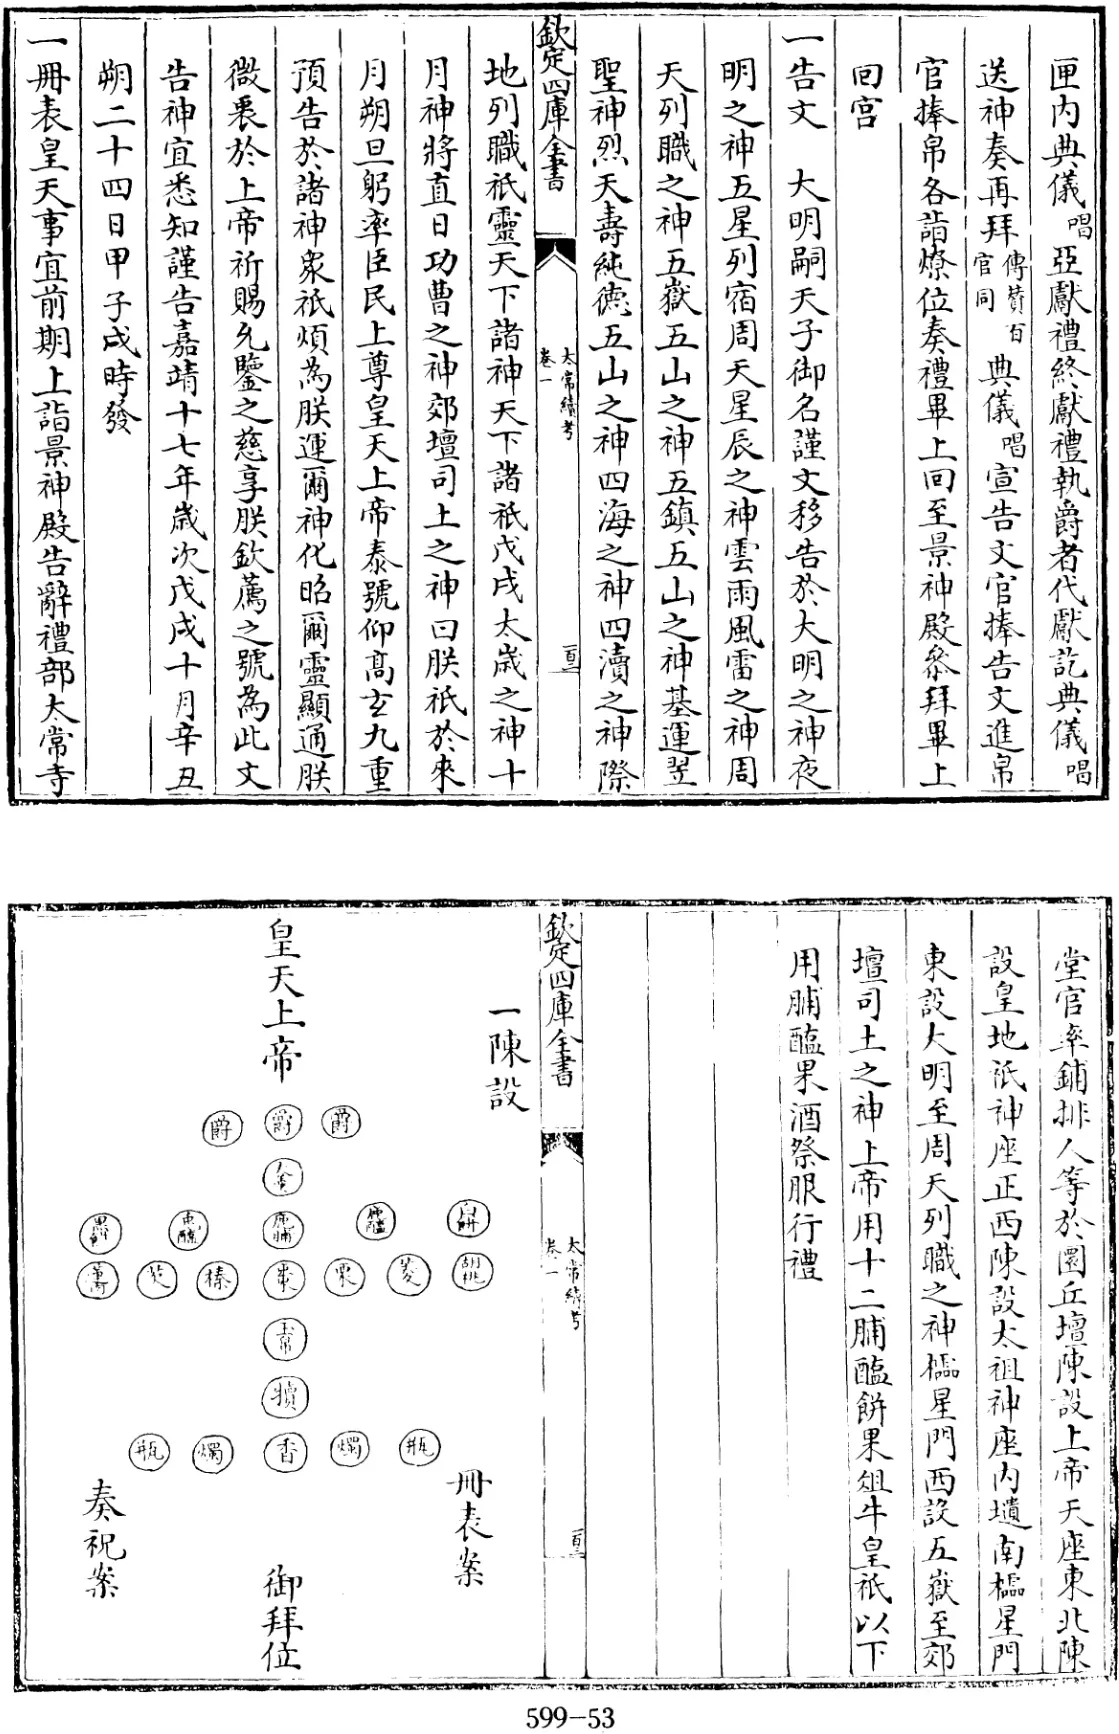 匣内典儀唱亞獻禮終獻禮執爵者代獻訖典儀唱
送神奏再拜傳贊百官同典儀唱宣告文官捧告文進帛
官捧帛各詣燎位奏禮畢上回至景神殿叅拜畢上
回宫
一告文　大明嗣天子御名謹文移告於大明之神夜
明之神五星列宿周天星辰之神雲雨風雷之神周
天列職之神五嶽五山之神五鎮五山之神基運翌
聖神烈天壽純德五山之神四海之神四瀆之神際
欽定四庫全書
太常續考
卷一
百三
地列職祇靈天下諸神天下諸祇戊戌太歲之神十
月神將直日功曹之神郊壇司上之神曰朕祇於來
月朔旦躬率臣民上尊皇天上帝泰號仰高玄九重
預告於諸神衆祇煩為朕運爾神化昭爾靈顯通朕
微衷於上帝祈賜允鑒之慈享朕欽薦之號為此文
告神宜悉知謹告嘉靖十七年歲次戊戌十月辛丑
朔二十四日甲子戌時發
一冊表皇天事宜前期上詣景神殿告辭禮部太常寺
堂官率鋪排人等於圜丘壇陳設上帝天座東北陳
設皇地祇神座正西陳設太祖神座内壝南櫺星門
東設大明至周天列職之神櫺星門西設五嶽至郊
壇司土之神上帝用十二脯醢餅果俎牛皇祇以下
用脯醢果酒祭服行禮
欽定四庫全書
太常續考
卷一
百三
一陳設
皇天上帝
爵 爵 爵
白餅 鹿醢 鹿脯
胡桃 菱 栗 棗 榛 芡
玉帛
犢
瓶 燭 香 燭 瓶
冊表案
御拜位
奏祝案
599-53